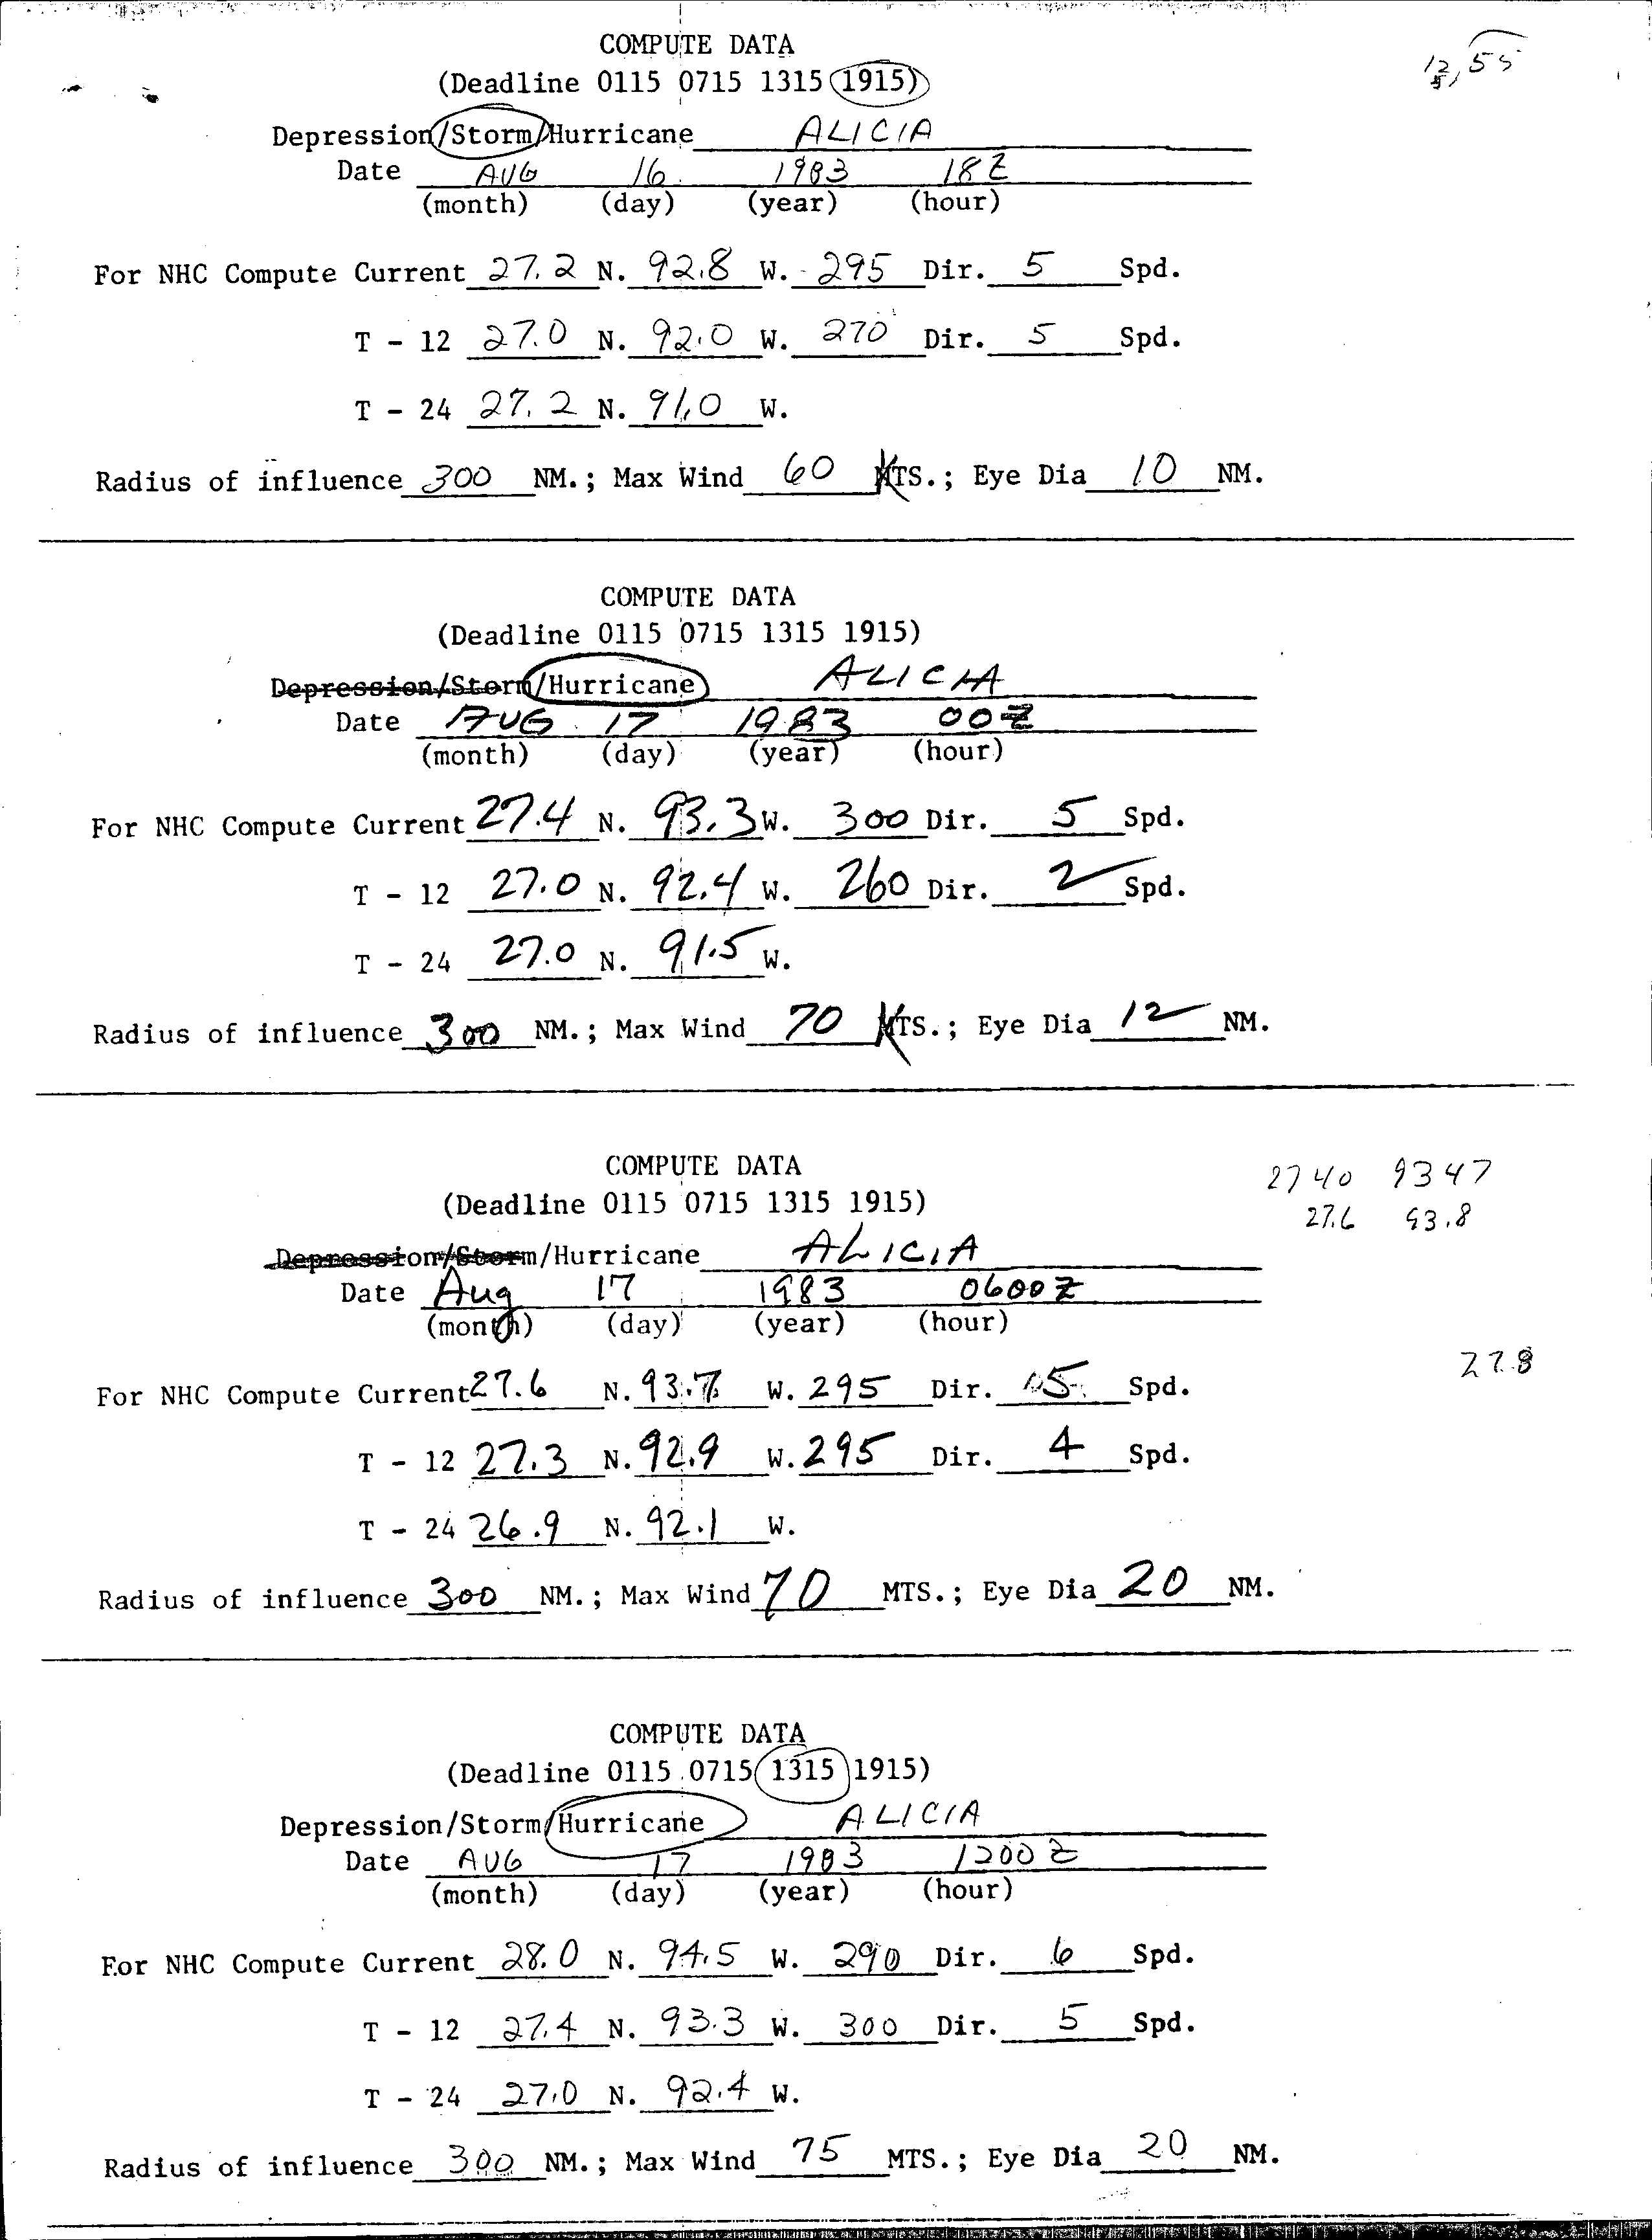 COMPUTE DATA
(Deadline 0115 0715 1315 1915)
Depression/Storm/Hurricane ALICIA
Date AUG 16 1983 18Z
(month) (day) (year) (hour)
For NHC Compute Current 27.2 N. 92.8 W. 295 Dir. 5 Spd.
T - 12 27.0 N. 92.0 W. 270 Dir. 5 Spd.
T - 24 27.2 N. 91.0 W.
Radius of influence 300 NM.; Max Wind 60 KTS.; Eye Dia 10 NM.
COMPUTE DATA
(Deadline 0115 0715 1315 1915)
Depression/Storm/Hurricane ALICIA
Date AUG 17 1983 00Z
(month) (day) (year) (hour)
For NHC Compute Current 27.4 N. 93.3 W. 300 Dir. 5 Spd.
T - 12 27.0 N. 92.4 W. 260 Dir. 2 Spd.
T - 24 27.0 N. 91.5 W.
Radius of influence 300 NM.; Max Wind 70 KTS.; Eye Dia 12 NM.
COMPUTE DATA
2740 9347
(Deadline 0115 0715 1315 1915)
27.6 93.8
Depression/Storm/Hurricane ALICIA
Date Aug 17 1983 0600Z
(month) (day) (year) (hour)
27.8
For NHC Compute Current 27.6 N. 93.7 W. 295 Dir. 5 Spd.
T - 12 27.3 N. 92.9 W. 295 Dir. 4 Spd.
T - 24 26.9 N. 92.1 W.
Radius of influence 300 NM.; Max Wind 70 MTS.; Eye Dia 20 NM.
COMPUTE DATA
(Deadline 0115 0715 1315 1915)
Depression/Storm/Hurricane ALICIA
Date AUG 17 1983 1200Z
(month) (day) (year) (hour)
For NHC Compute Current 28.0 N. 94.5 W. 290 Dir. 6 Spd.
T - 12 27.4 N. 93.3 W. 300 Dir. 5 Spd.
T - 24 27.0 N. 92.4 W.
Radius of influence 300 NM.; Max Wind 75 MTS.; Eye Dia 20 NM.